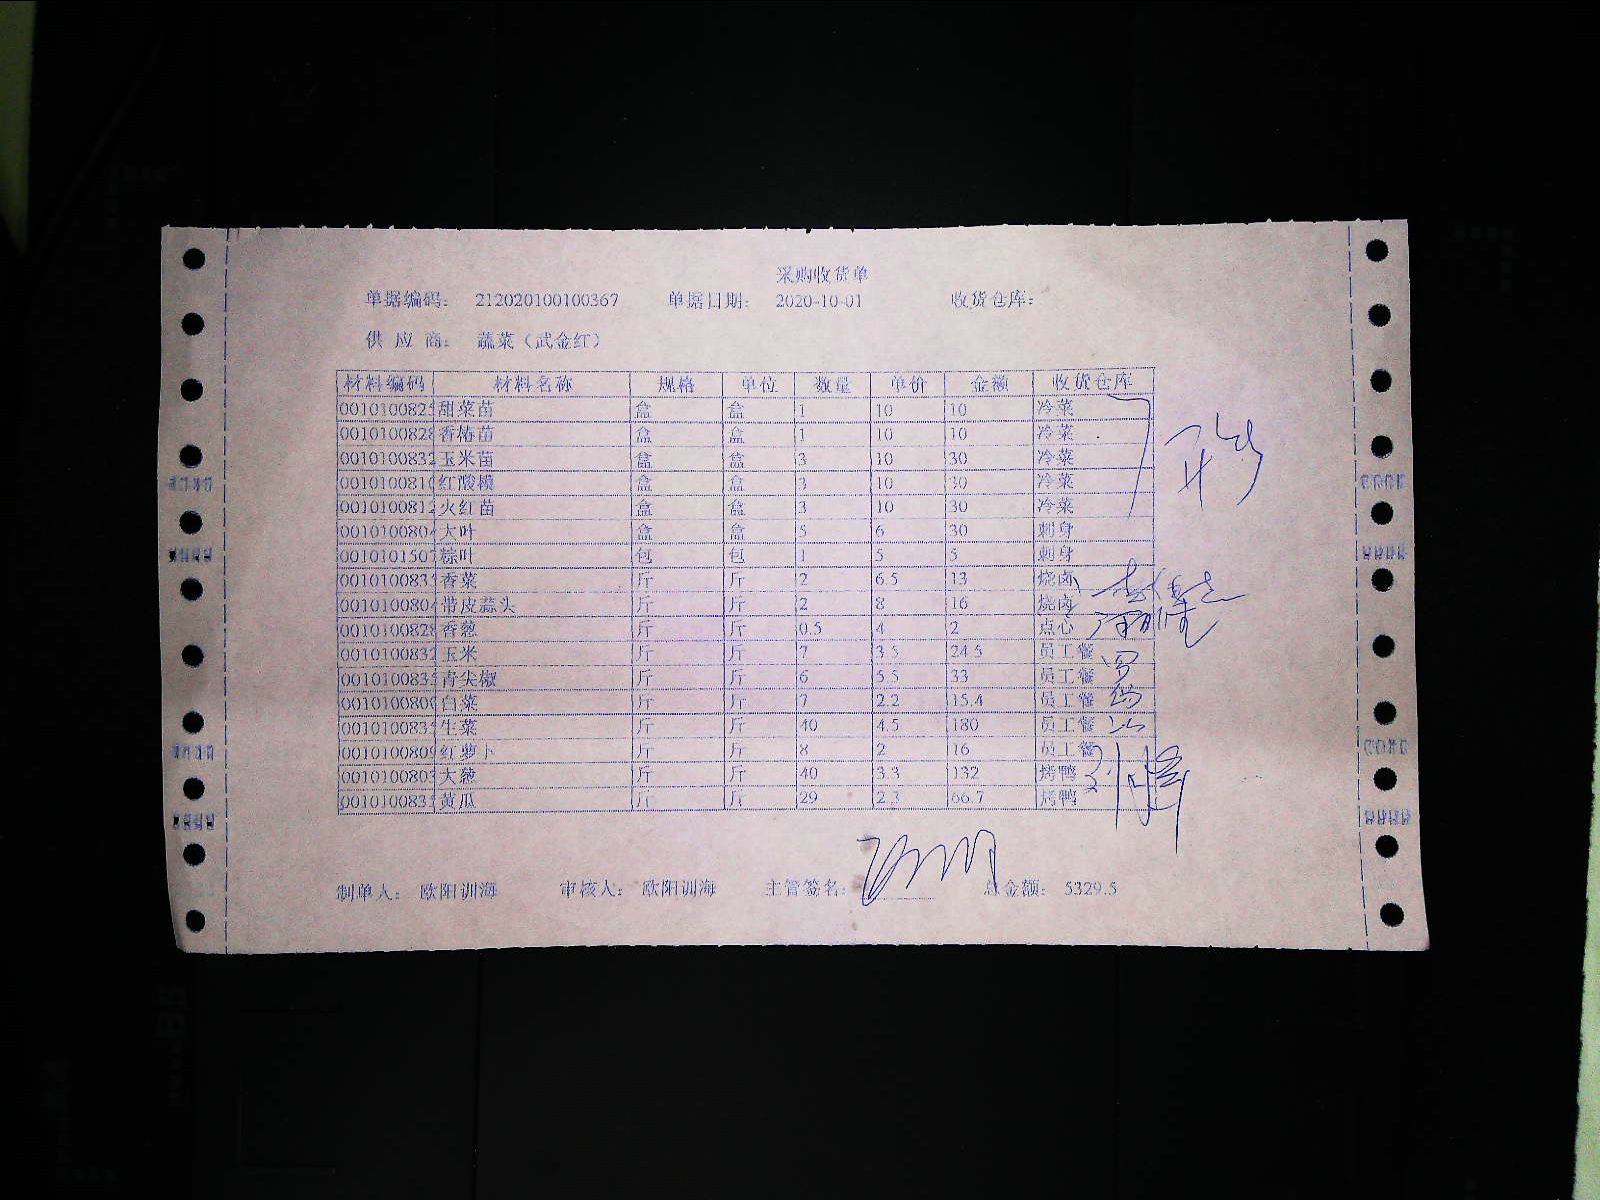 采购收货单
单据编码： 212020100100367 单据日期： 2020-10-01 收货仓库：
供 应 商： 蔬菜（武金红）
材料编码 材料名称 规格 单位 数量 单价 金额 收货仓库
001010082 甜菜苗 盒 盒 1 10 10 冷菜
0010100828 香椿苗 盒 盒 1 10 10 冷菜
0010100832 玉米苗 盒 盒 3 10 30 冷菜
001010081 红酸模 盒 盒 3 10 30 冷菜
001010081 火红苗 盒 盒 3 10 30 冷菜
001010080 大叶 盒 盒 5 6 30 刺身
001010150 粽叶 包 包 1 5 5 刺身
001010083 香菜 斤 斤 2 6.5 13 烧卤
001010080 带皮蒜头 斤 斤 2 8 16 烧卤
0010100828 香葱 斤 斤 0.5 4 2 点心
001010083 玉米 斤 斤 7 3.5 24.5 员工餐
001010083 青尖椒 斤 斤 6 5.5 33 员工餐
001010080 白菜 斤 斤 7 2.2 15.4 员工餐
001010083 生菜 斤 斤 40 4.5 180 员工餐
0010100809 红萝卜 斤 斤 8 2 16 员工餐
001010080 大葱 斤 斤 40 3.3 132 烤鸭
001010083 黄瓜 斤 斤 29 2.3 66.7 烤鸭
制单人： 欧阳训海 审核人： 欧阳训海 主管签名： 总金额： 5329.5